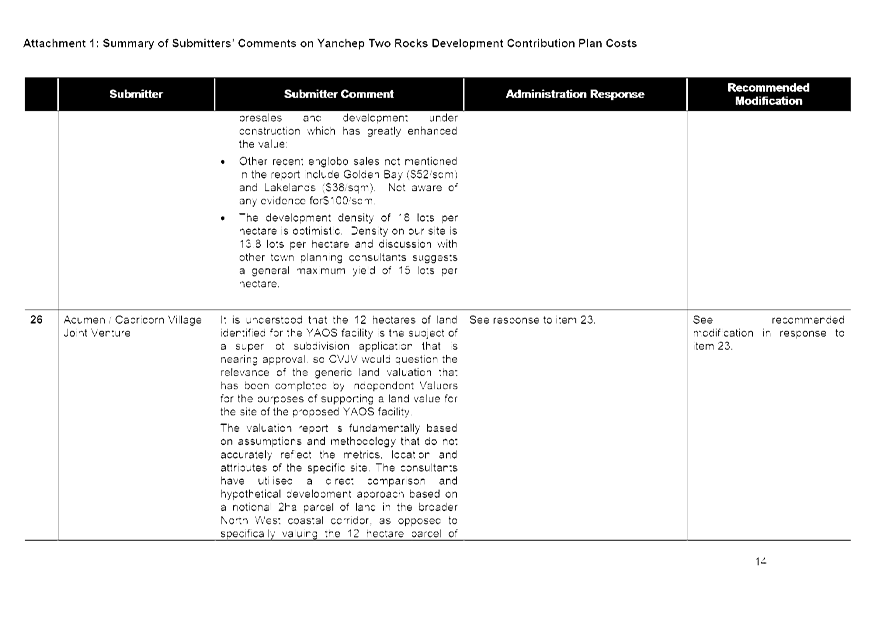 Attachment 1: Summary of Submitters' Comments on Yanchep Two Rocks Development Contribution Plan Costs
Submitter
Submitter Comment
Administration Response
Recommended
Modification
presales and development under
construction which has greatly enhanced
the value;
• Other recent englobo sales not mentioned
in the report include Golden Bay ($52/sqm)
and Lakelands ($38/sqm). Not aware of
any evidence for$100/sqm.
• The development density of 18 lots per
hectare is optimistic. Density on our site is
13.8 lots per hectare and discussion with
other town planning consultants suggests
a general maximum yield of 15 lots per
hectare.
26
Acumen / Capricorn Village
Joint Venture
It is understood that the 12 hectares of land
identified for the YAOS facility is the subject of
a super lot subdivision application that is
nearing approval, so CVJV would question the
relevance of the generic land valuation that
has been completed by Independent Valuers
for the purposes of supporting a land value for
the site of the proposed YAOS facility.
The valuation report is fundamentally based
on assumptions and methodology that do not
accurately reflect the metrics, location and
attributes of the specific site. The consultants
have utilised a direct comparison and
hypothetical development approach based on
a notional 2ha parcel of land in the broader
North West coastal corridor, as opposed to
specifically valuing the 12 hectare parcel of
See response to item 23.
See recommended
modification in response to
item 23.
14